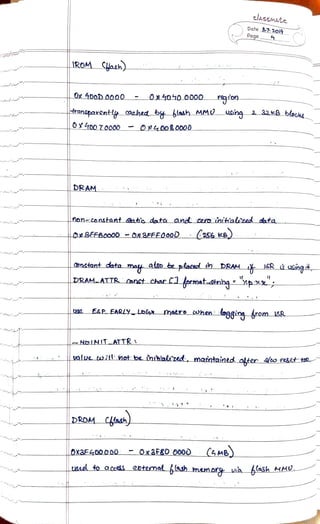 classmate
Date 3.7.2019
Page 4
IROM (flash)
0x 400D 0000 - 0x4040 0000 region
transparently cached by flash MMU using 2 32KB blocks
0x 4007 0000 - 0x4008 0000
DRAM
non-constant static data and zero initialized data.
0x3FFB0000 - 0x3FFF0000 (256 KB)
Constant data may also be placed in DRAM if ISR is using it.
DRAM_ATTR const char [] format_string = "%p %x";
use ESP_EARLY_LOGx macro when logging from ISR
__NOINIT_ATTR :
value will not be initialized, maintained after s/w reset
DROM (flash)
0x3F400000 - 0x3F80 0000 (4MB)
used to access external flash memory via flash MMU.